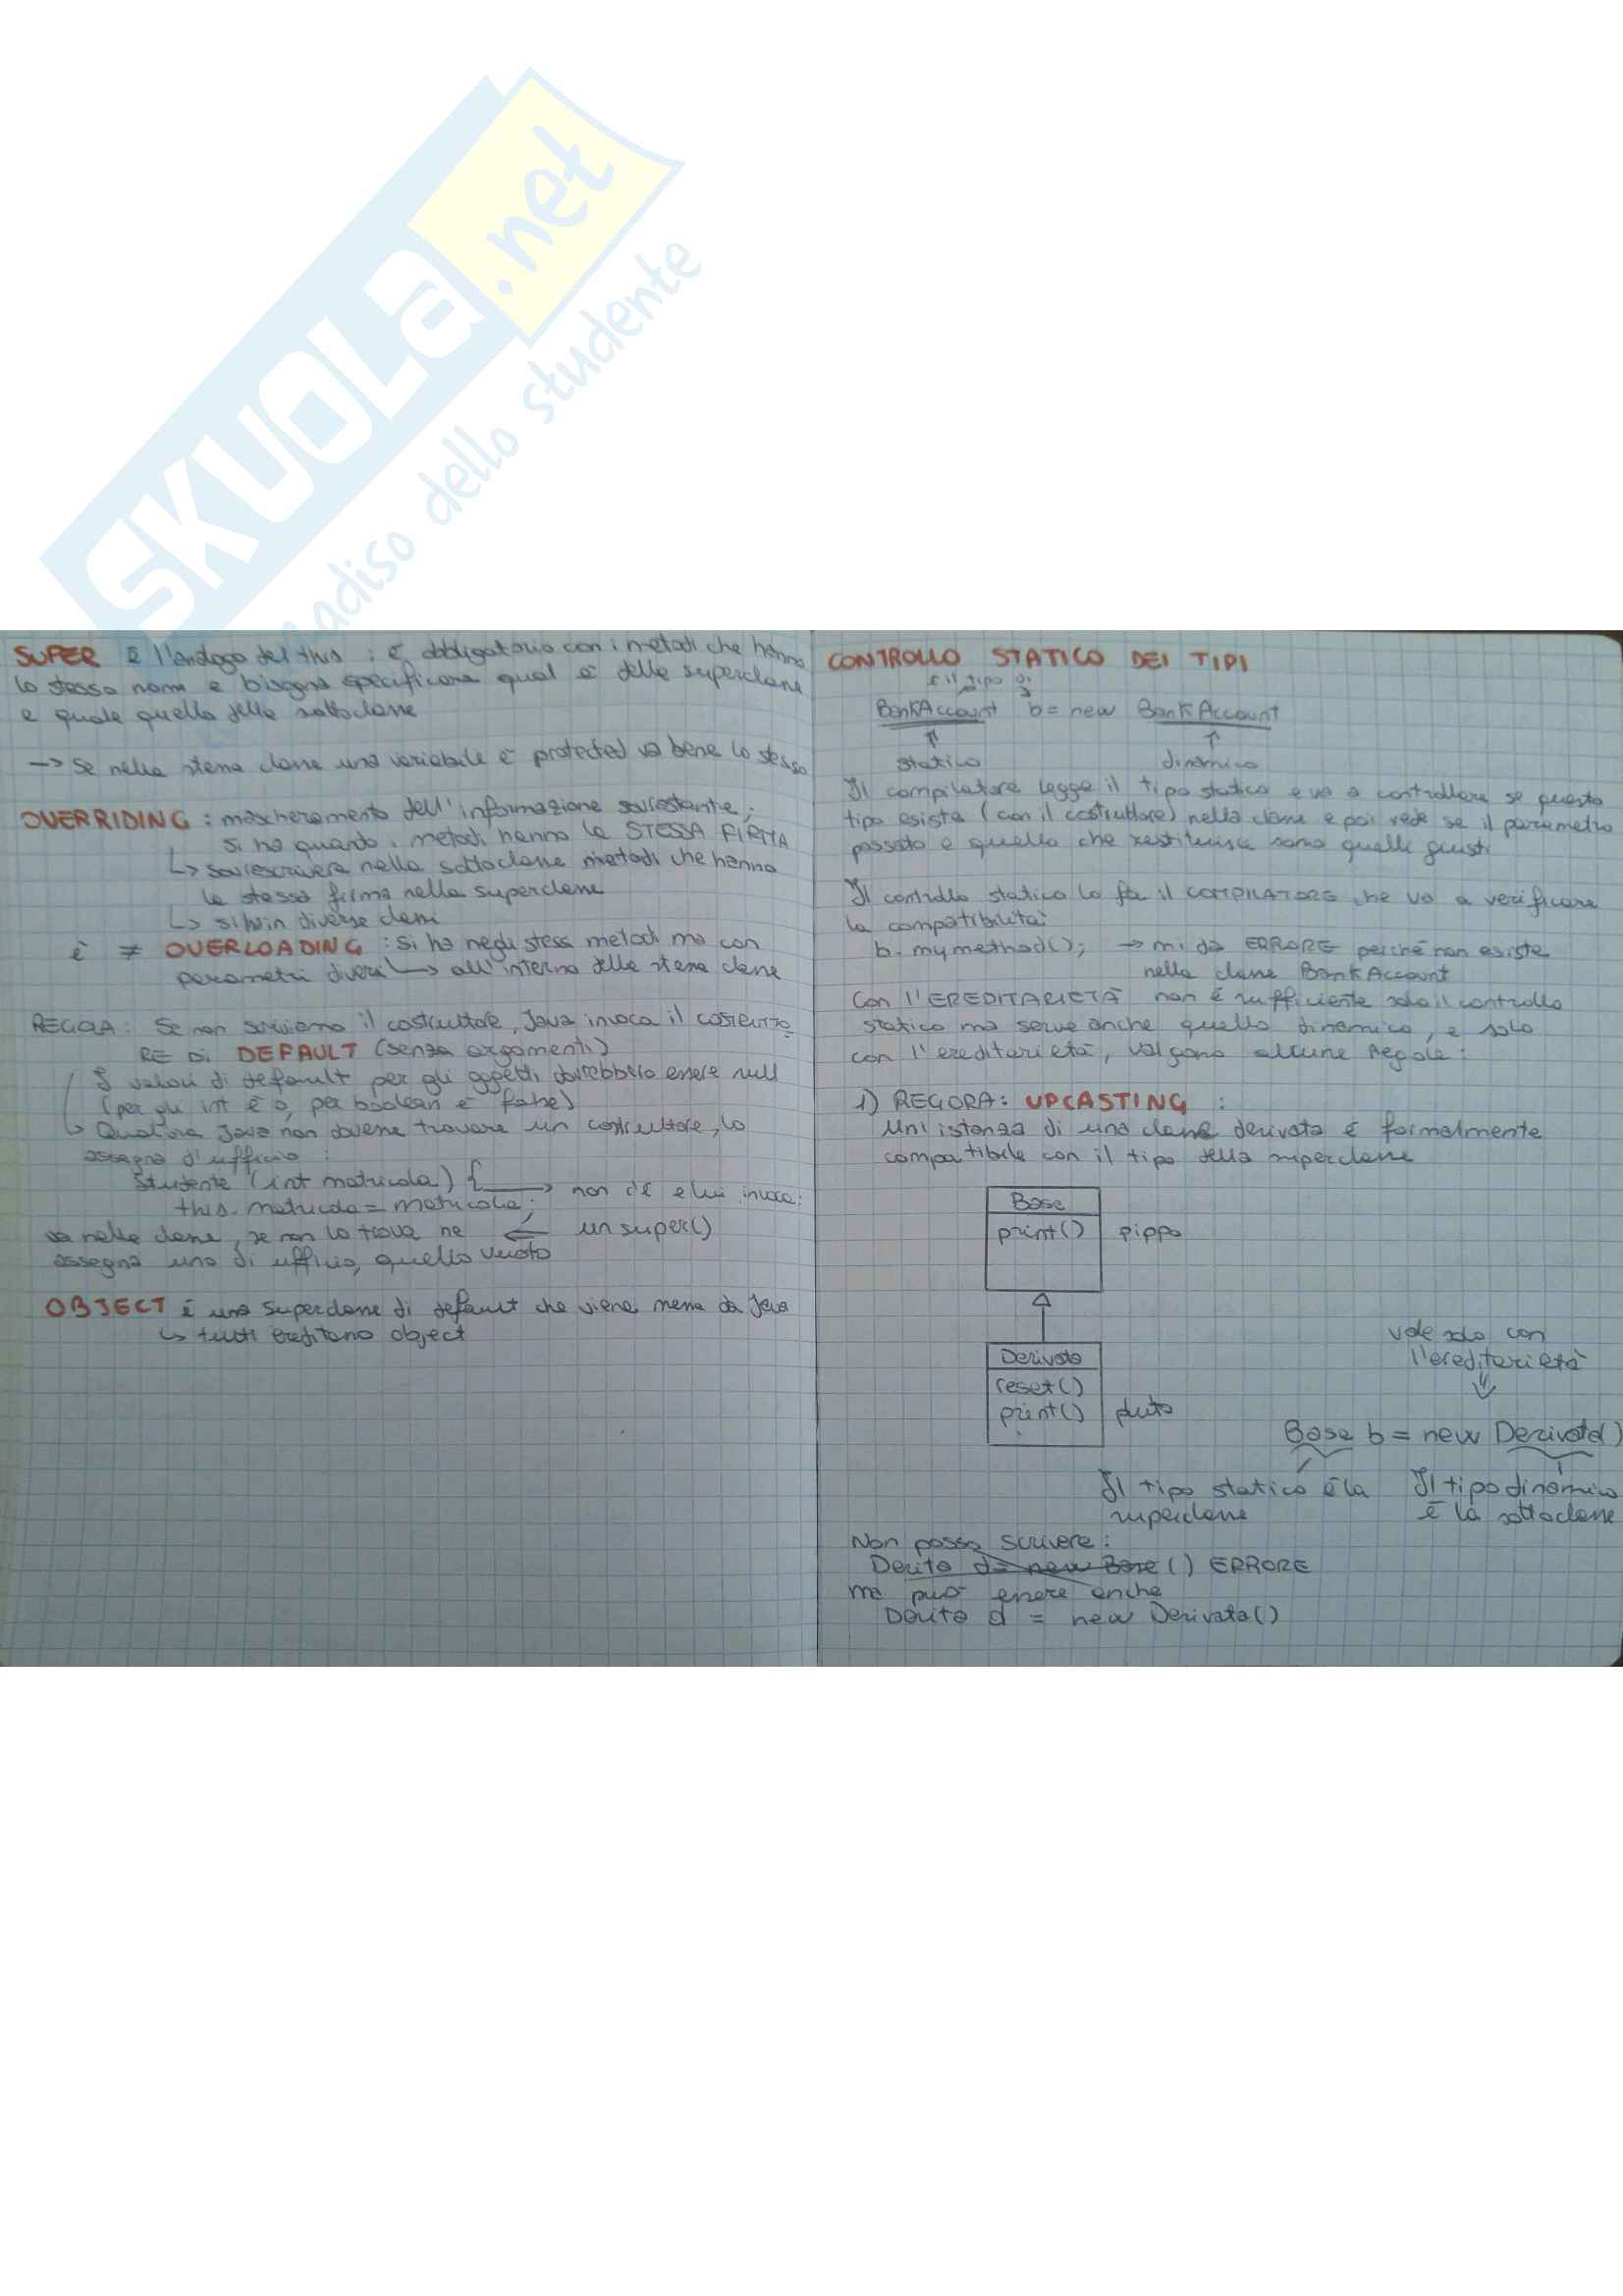 SKUOLA.net
adiso dello studente
SUPER È l'analogo del this : è obbligatorio con i metodi che hanno
lo stesso nome e bisogna specificare qual è della superclasse
e quale quello della sottoclasse
→ Se nella stessa classe una variabile è protected va bene lo stesso
OVERRIDING : mascheramento dell'informazione sovrastante ;
si ha quando i metodi hanno la STESSA FIRMA
↳ sovrascrivere nella sottoclasse metodi che hanno
la stessa firma nella superclasse
↳ si ha in diverse classi
è ≠ OVERLOADING : Si ha negli stessi metodi ma con
parametri diversi ↳ all'interno della stessa classe
REGOLA : Se non scriviamo il costruttore, Java invoca il COSTRUTTO
RE DI DEFAULT (senza argomenti)
I valori di default per gli oggetti dovrebbero essere null
(per gli int è 0, per boolean è false)
↳ Qualora Java non dovesse trovare un costruttore, lo
assegna d'ufficio :
Studente (int matricola) { → non c'è e lui invoca:
this.matricola = matricola ;
va nella classe, se non lo trova ne ⇐ un super()
assegna uno di ufficio, quello vuoto
OBJECT è una superclasse di default che viene messa da Java
↳ tutti ereditano object
CONTROLLO STATICO DEI TIPI
è il tipo di
BankAccount b = new BankAccount
statico dinamico
Il compilatore legge il tipo statico e va a controllare se questo
tipo esiste (con il costruttore) nella classe e poi vede se il parametro
passato e quello che restituisce sono quelli giusti
Il controllo statico lo fa il COMPILATORE che va a verificare
la compatibilità:
b.mymethod(); → mi dà ERRORE perché non esiste
nella classe BankAccount
Con l'EREDITARIETÀ non è sufficiente solo il controllo
statico ma serve anche quello dinamico, e solo
con l'ereditarietà, valgono alcune regole :
1) REGORA : UPCASTING :
Un'istanza di una classe derivata è formalmente
compatibile con il tipo della superclasse
Base
print() pippo
Derivata
reset()
print() pluto
vale solo con
l'ereditarietà
Base b = new Derivata()
Il tipo statico è la
superclasse
Il tipo dinamico
è la sottoclasse
Non posso scrivere :
Derita d = new Base () ERRORE
ma può essere anche
Derita d = new Derivata()